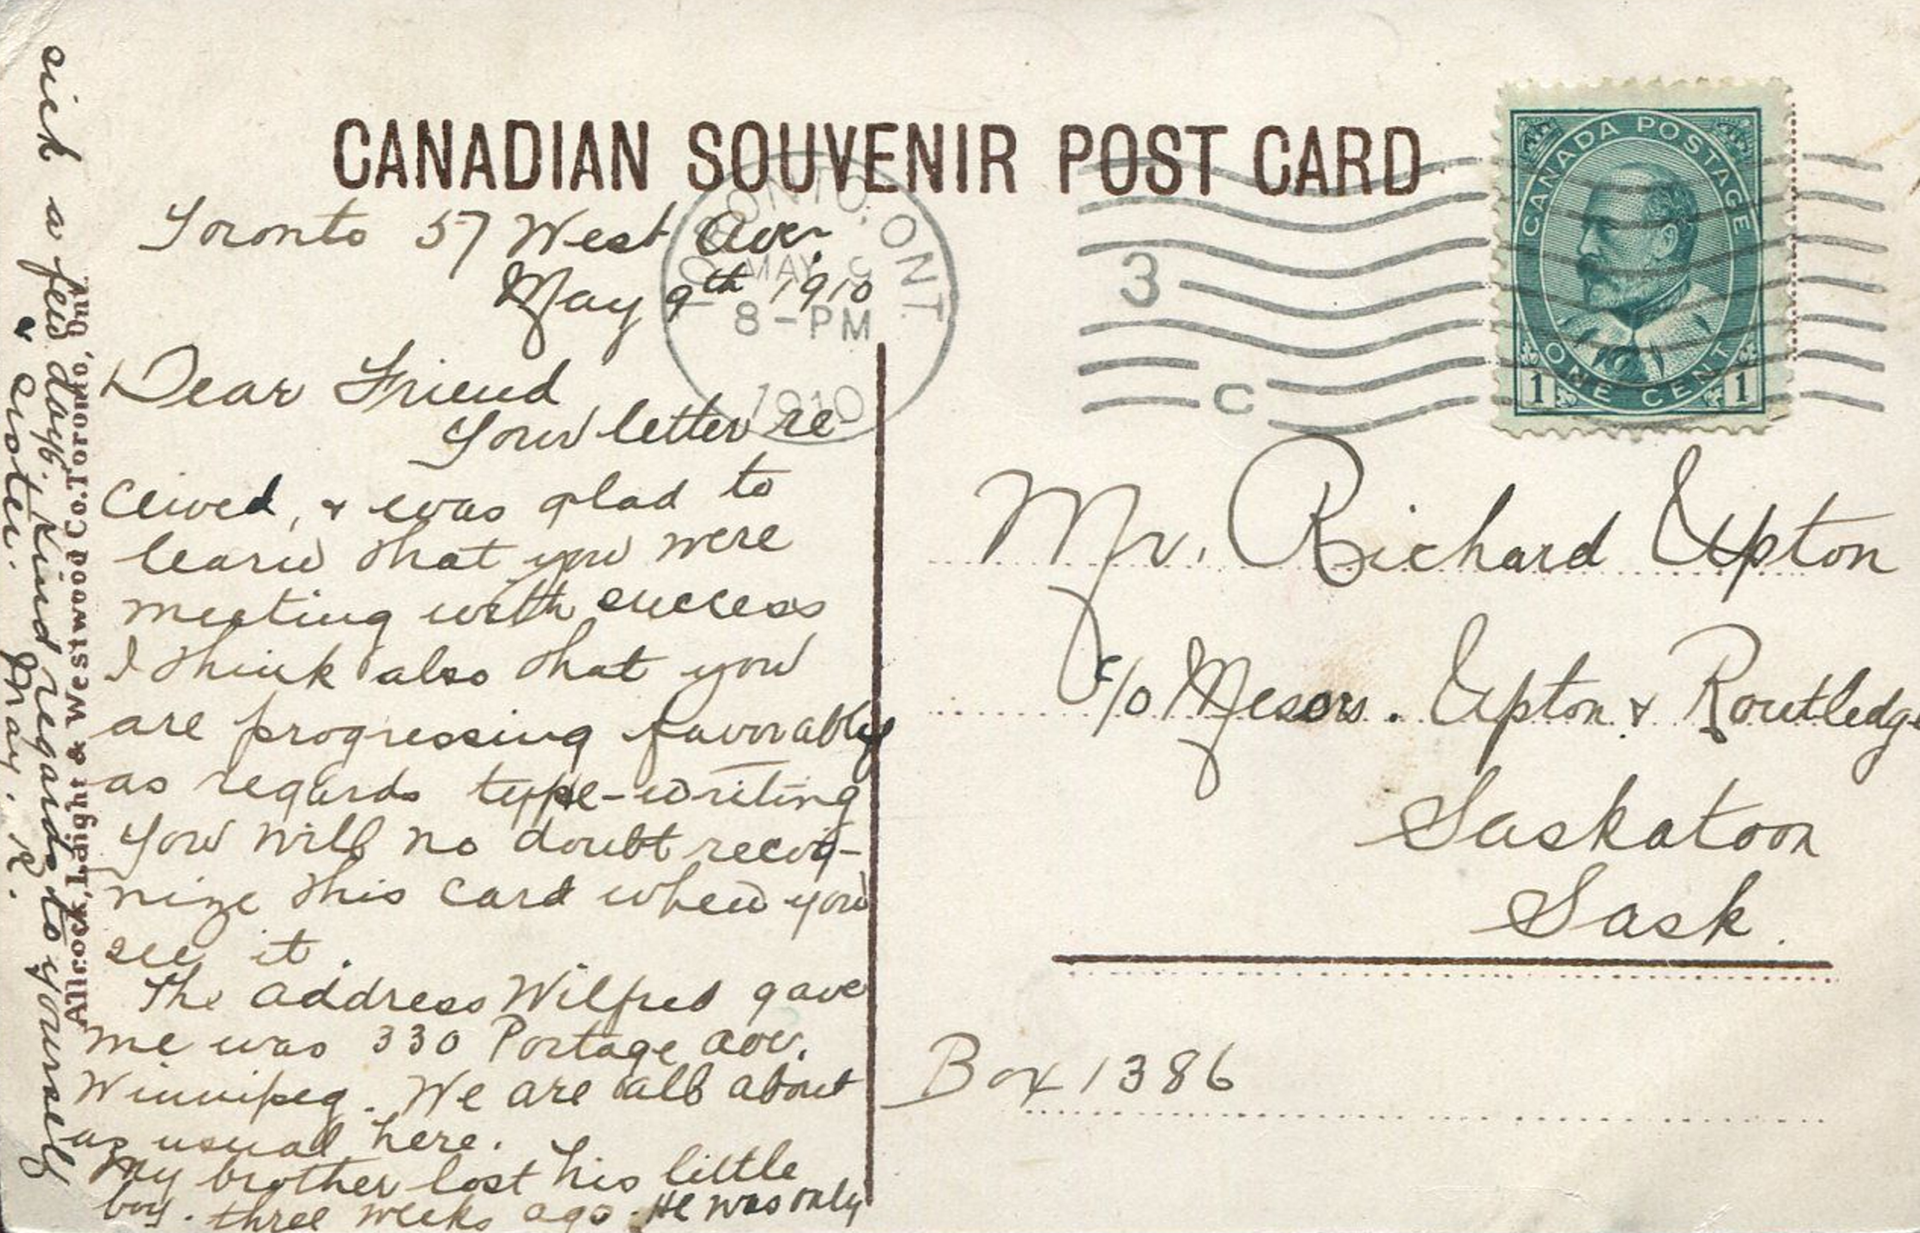 CANADIAN SOUVENIR POST CARD
Toronto 57 West Ave.
May 9th 1910
Dear Friend
Your letter re-
ceived, & was glad to
learn that you were
meeting with success
I think also that you
are progressing favorably
as regards type-writing
You will no doubt recog-
nize this card when you
see it.
The address Wilfred gave
me was 330 Portage ave.
Winnipeg. We are all about
as usual here.
My brother lost his little
boy. three weeks ago. He was only
sick a few days. Kind regards to yourself
& sister. May. R.
Allcock, Laight & Westwood Co. Toronto, Ont.
TORONTO, ONT.
MAY 9
8-PM
1910
3
C
CANADA POSTAGE
1 ONE CENT 1
Mr. Richard Upton
c/o Messrs. Upton & Routledge
Saskatoon
Sask.
Box 1386